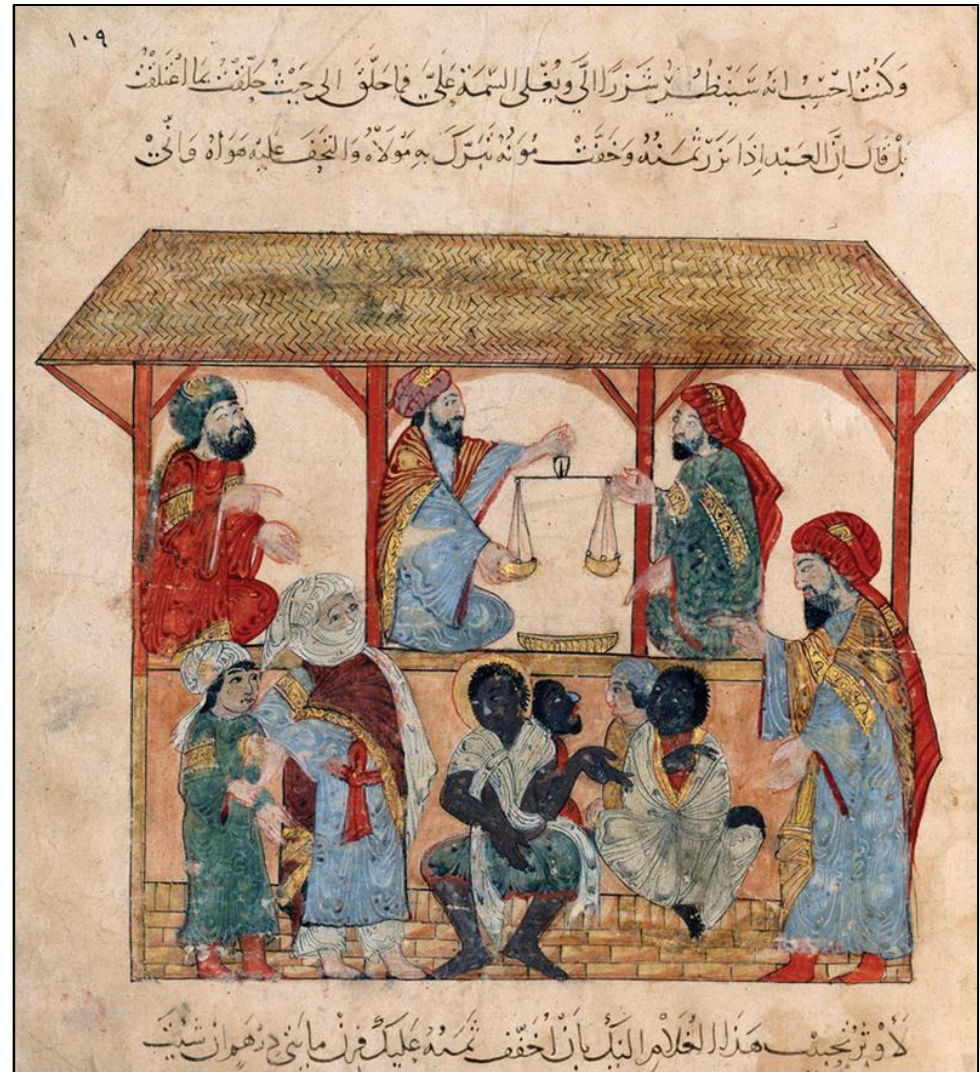 ١٠٩
وكنت احسب انه سينظر شزرا الي ويغلى السيمة علي فما حلق الى حيث حلقت بما اعتلقت
بل قال ان العبد اذا نزر ثمنه وخفت مونه تبرك به مولاه والتحف عليه هواه واني
لاوثر تحبيب هذا الغلام اليك بان اخفف ثمنه عليك فزن مايتي درهم ان شيت